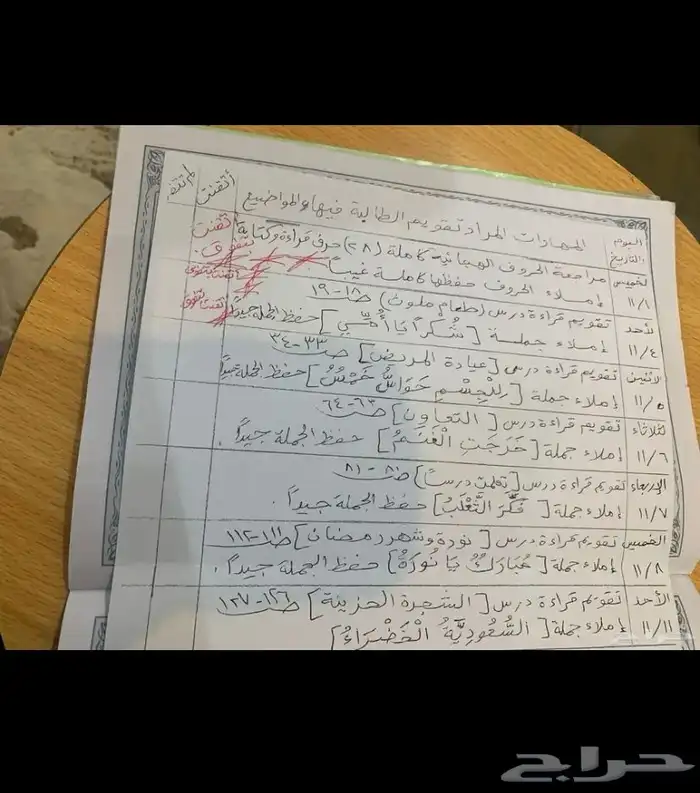 اليوم والتاريخ المهارات المراد تقويم الطالبة فيها والمواضيع أتقنت لم تتقن
الخميس مراجعة الحروف الهجائية كاملة (٢٨) حرف قراءة وكتابة أتقنت بتفوق.
١١/١ إملاء الحروف حفظها كاملة غيباً
الأحد تقويم قراءة درس (طعام ملوث) ص١٨-١٩
١١/٤ إملاء جملة [شُكراً يَا أُمِّي] حفظ الجملة جيداً
الاثنين تقويم قراءة درس [عيادة المريض] ص٣٣-٣٤
١١/٥ إملاء جملة [لِلْجِسْمِ حَوَاسٌّ خَمْسٌ] حفظ الجملة جيداً
الثلاثاء تقويم قراءة درس [التعاون] ص٦٣-٦٤
١١/٦ إملاء جملة [خَرَجَتِ الْغَنَمُ] حفظ الجملة جيداً.
الاربعاء تقويم قراءة درس [تعلمت درساً] ص٨٠-٨١
١١/٧ إملاء جملة [فَكَّرَ الثَّعْلَبُ] حفظ الجملة جيداً.
الخميس تقويم قراءة درس [نورة وشهر رمضان] ص١١١-١١٢
١١/٨ إملاء جملة [مُبَارَكٌ يَا نُورَةُ] حفظ الجملة جيداً.
الأحد تقويم قراءة درس [الشجرة الحزينة] ص١٢٦-١٢٧
١١/١١ إملاء جملة [السُّعُودِيَّةُ الْخَضْرَاءُ]
حراج